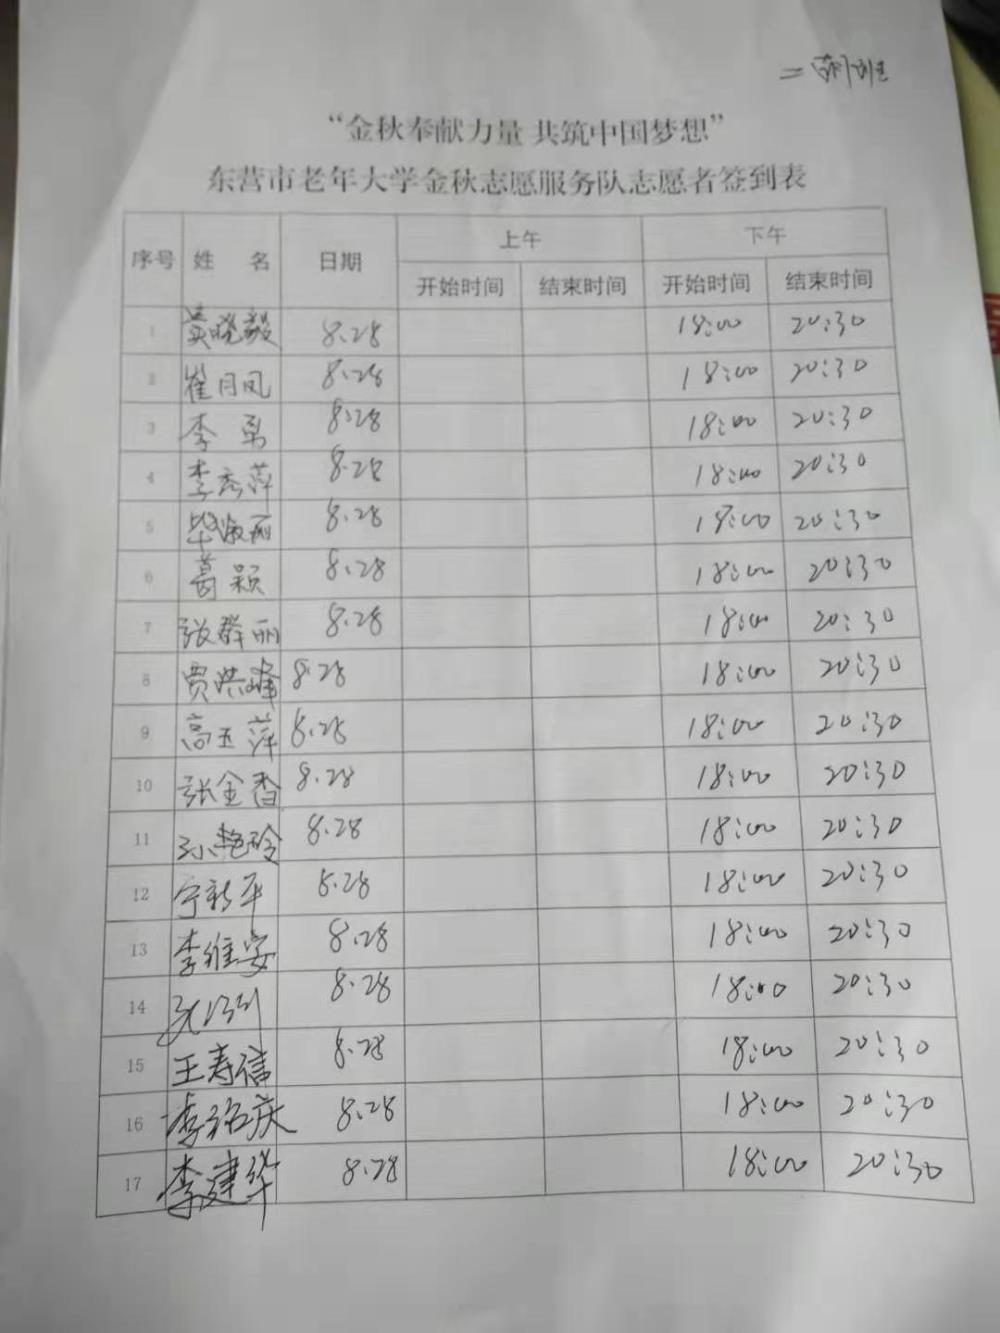 二胡班
“金秋奉献力量 共筑中国梦想”
东营市老年大学金秋志愿服务队志愿者签到表
序号 姓 名 日期 上午 下午
开始时间 结束时间 开始时间 结束时间
1 黄晓毅 8.28 18:00 20:30
2 崔月凤 8.28 18:00 20:30
3 李勇 8.28 18:00 20:30
4 李秀萍 8.28 18:00 20:30
5 毕淑丽 8.28 18:00 20:30
6 葛颖 8.28 18:00 20:30
7 张群丽 8.28 18:00 20:30
8 贾洪峰 8.28 18:00 20:30
9 高玉萍 8.28 18:00 20:30
10 张金香 8.28 18:00 20:30
11 孙艳玲 8.28 18:00 20:30
12 宁新平 8.28 18:00 20:30
13 李维安 8.28 18:00 20:30
14 8.28 18:00 20:30
15 王寿信 8.28 18:00 20:30
16 李裕庆 8.28 18:00 20:30
17 李建华 8.28 18:00 20:30